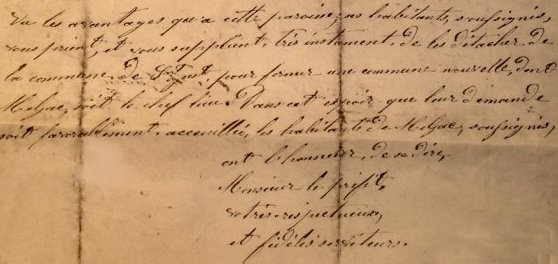 Vu les avantages qu'a cette paroisse, nos habitants, soussignés,
vous prient, et vous supplient, très instament, de les détacher de
la commune de St Just, pour former une commune nouvelle, dont
Meljac, soit le chef lieu. Dans cet espoir que leur demande
soit favorablement accueillie, les habitants de Meljac, soussignés,
ont l'honneur, de se dire,
Monsieur le préfet,
vos très respectueux,
et fidèles serviteurs.